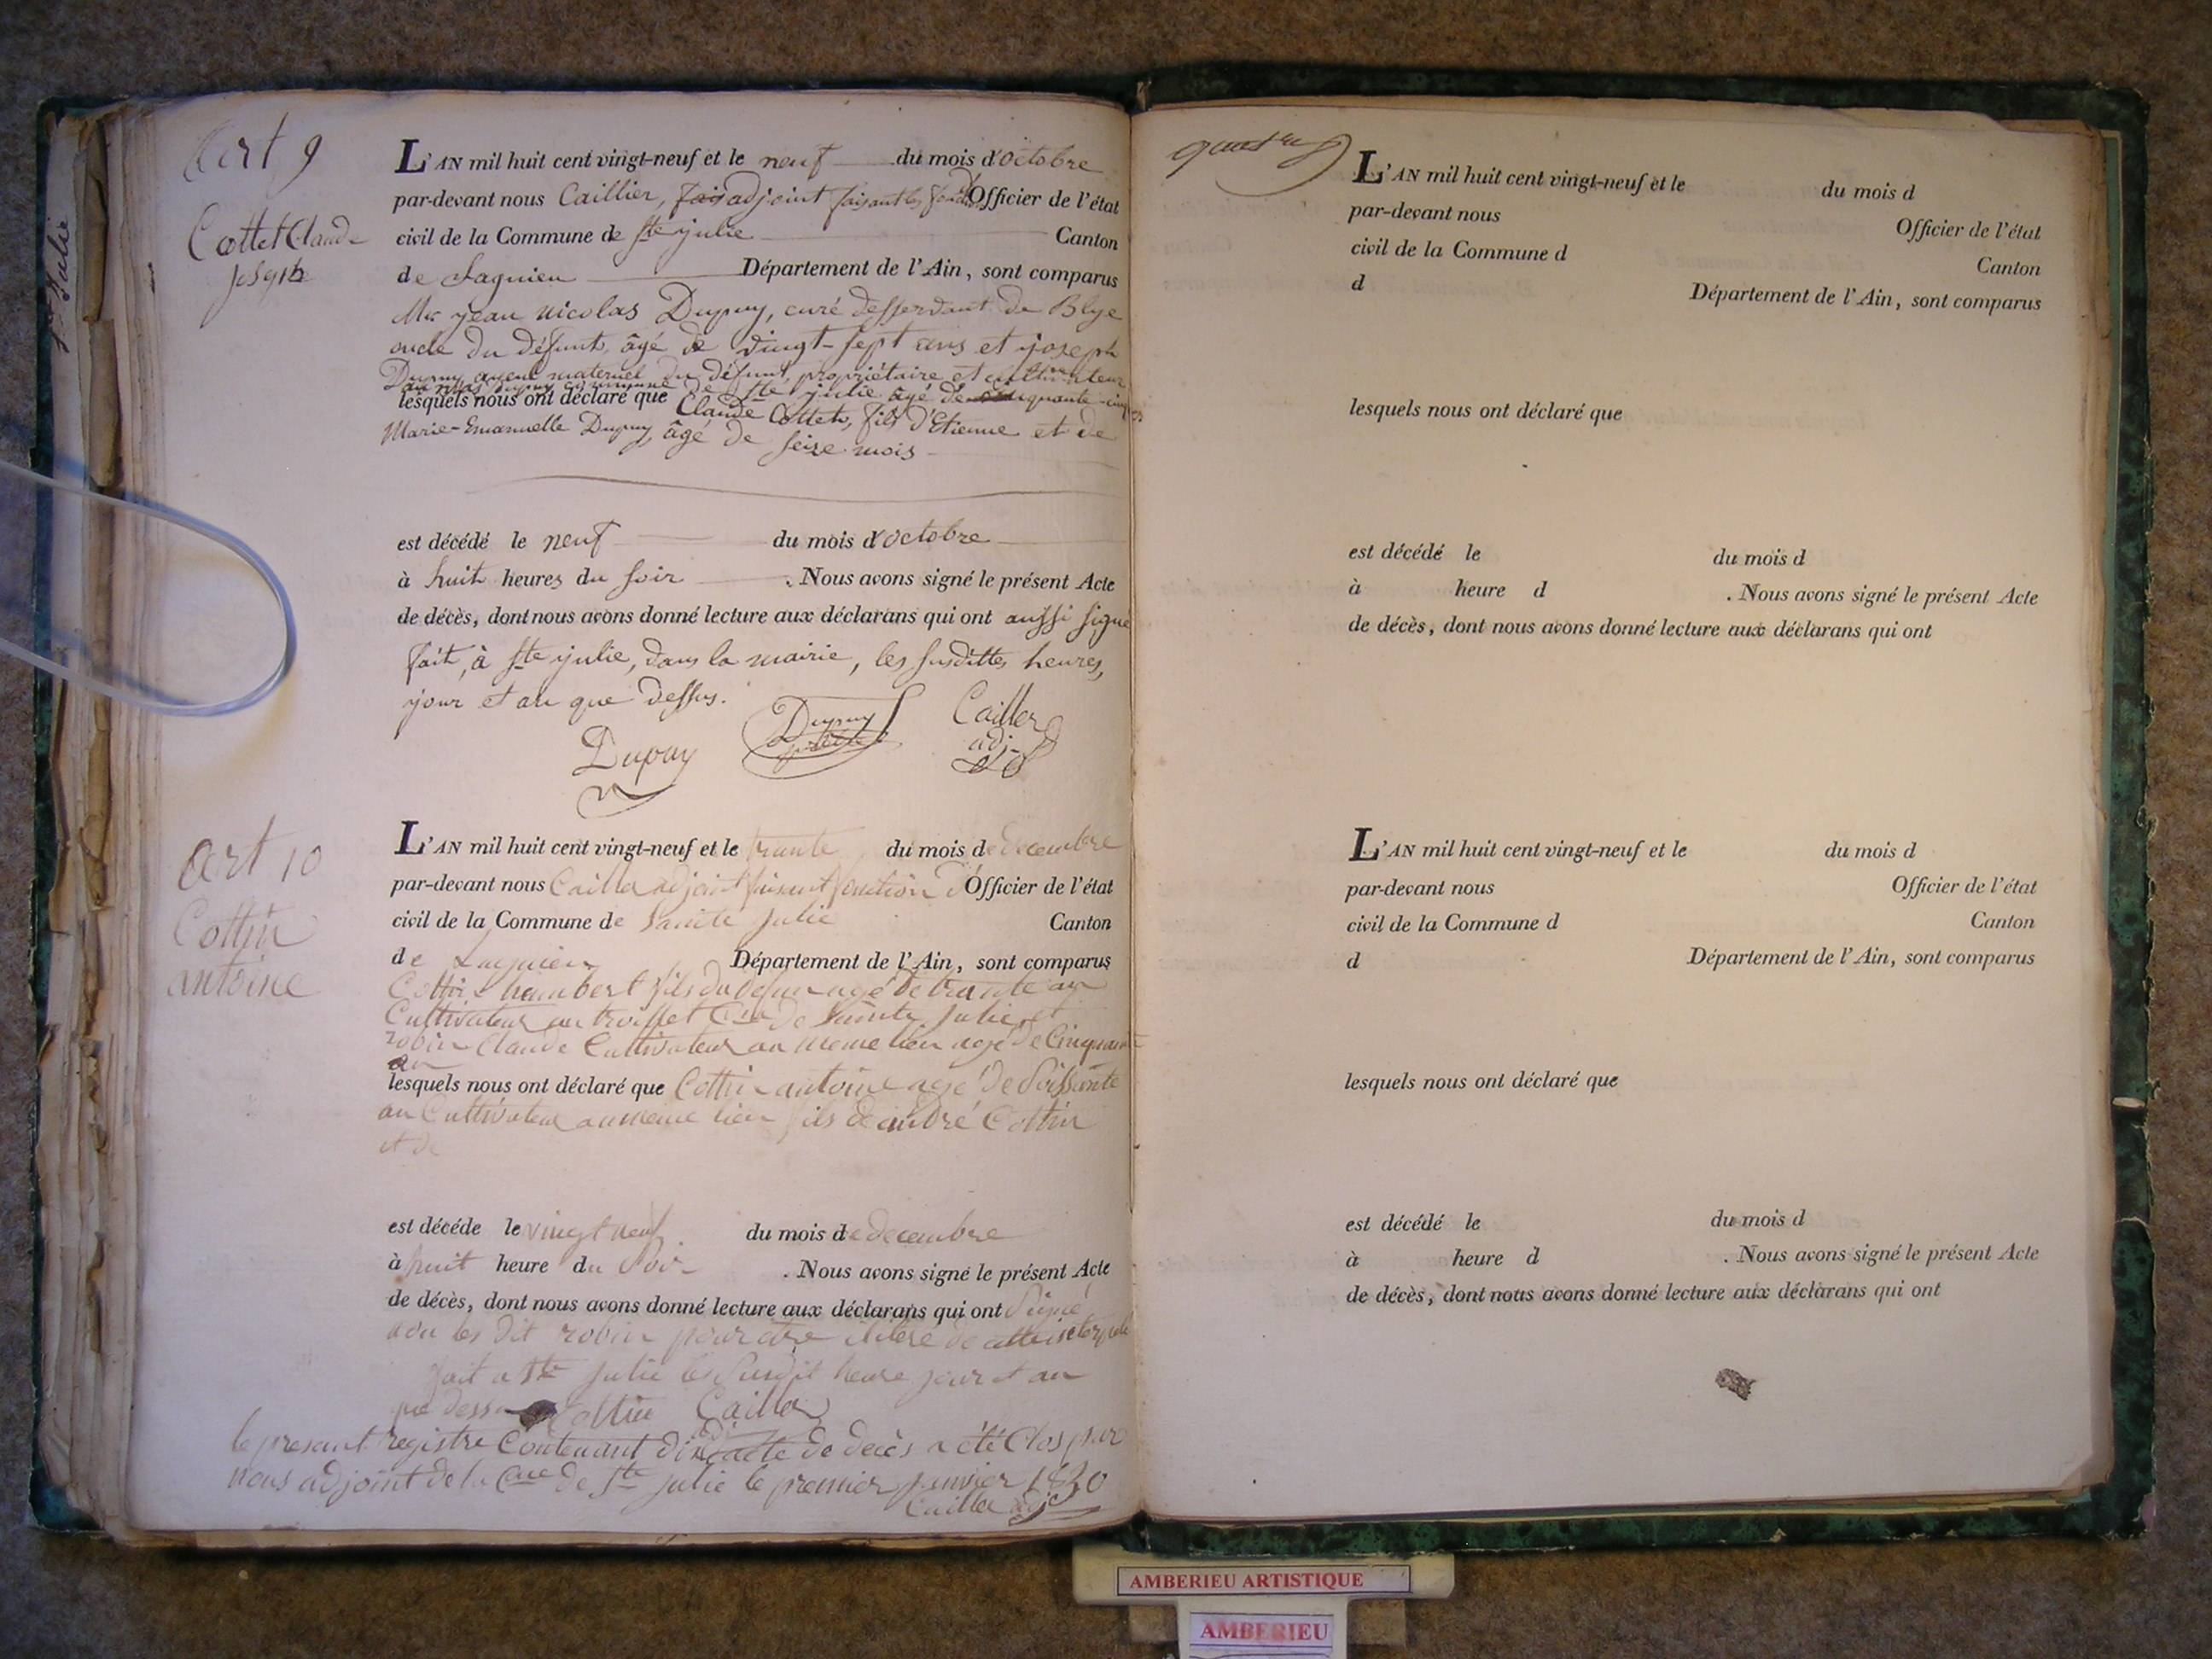 Ste Julie
Art 9
Cottet Claude
joseph
L'AN mil huit cent vingt-neuf et le neuf du mois d'octobre
par-devant nous Caillier, adjoint faisant les fonctions d'Officier de l'état
civil de la Commune de Ste julie Canton
de Lagnieu Département de l'Ain, sont comparus
Mr jean nicolas Dupuy, curé desservant de Blye
oncle du défunt, âgé de vingt-sept ans et joseph
Dupuy ayeul maternel du défunt, propriétaire et cultivateur
commune de Ste julie âgé de cinquante-cinq
lesquels nous ont déclaré que Claude Cottet, fils d'Etienne et de
Marie-Emanuelle Dupuy, âgé de seize mois
est décédé le neuf du mois d'octobre
à huit heures du soir . Nous avons signé le présent Acte
de décès, dont nous avons donné lecture aux déclarans qui ont aussi signé
fait, à Ste julie, dans la mairie, les susdittes heures,
jour et an que dessus.
Dupuy Dupuy Cailler
adj
Art 10
Cottin
antoine
L'AN mil huit cent vingt-neuf et le trante du mois de decembre
par-devant nous Cailler adjoint faisant fonction d'Officier de l'état
civil de la Commune de Sainte Julie Canton
de Lagnieu Département de l'Ain, sont comparus
Cottin humbert fils du defun agé de trante an
Cultivateur au troillet Cne de Sainte Julie et
robin Claude Cultivateur au meme lieu agé de Cinquante
an
lesquels nous ont déclaré que Cottin antoine agé de Soissante
an Cultivateur au meme lieu fils de andré Cottin
et de
est décéde le vingt neuf du mois de decembre
à huit heure du Soir . Nous avons signé le présent Acte
de décès, dont nous avons donné lecture aux déclarans qui ont Signé
non les dit robin pour etre de
fait a Ste Julie les Susdit heure jour et an
que dessu Cottin Cailler
adj
le presant registre Contenant dix acte de decès a été Clos par
nous adjoint de la Cne de Ste Julie le premier janvier 1830
Cailler adj
L'AN mil huit cent vingt-neuf et le du mois d
par-devant nous Officier de l'état
civil de la Commune d Canton
d Département de l'Ain, sont comparus
lesquels nous ont déclaré que
est décédé le du mois d
à heure d . Nous avons signé le présent Acte
de décès, dont nous avons donné lecture aux déclarans qui ont
L'AN mil huit cent vingt-neuf et le du mois d
par-devant nous Officier de l'état
civil de la Commune d Canton
d Département de l'Ain, sont comparus
lesquels nous ont déclaré que
est décédé le du mois d
à heure d . Nous avons signé le présent Acte
de décès, dont nous avons donné lecture aux déclarans qui ont
AMBERIEU ARTISTIQUE
AMBERIEU